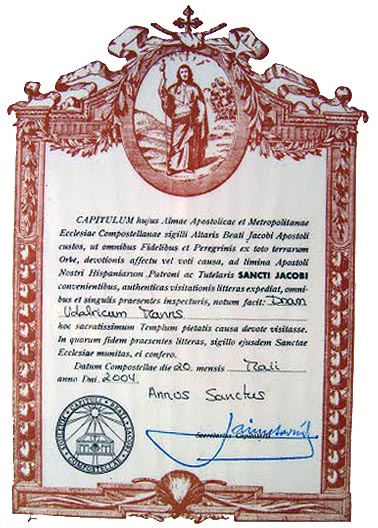 CAPITULUM hujus Almae Apostolicae et Metropolitanae
Ecclesiae Compostellanae sigilli Altaris Beati Jacobi Apostoli
custos, ut omnibus Fidelibus et Peregrinis ex toto terrarum
Orbe, devotionis affectu vel voti causa, ad limina Apostoli
Nostri Hispaniarum Patroni ac Tutelaris SANCTI JACOBI
convenientibus, authenticas visitationis litteras expediat, omni-
bus et singulis praesentes inspecturis, notum facit: Dnam
Udalricum Manns
hoc sacratissimum Templum pietatis causa devote visitasse.
In quorum fidem praesentes litteras, sigillo ejusdem Sanctae
Ecclesiae munitas, ei confero.
Datum Compostellae die 20 mensis Maii
anno Dni. 2004
Annus Sanctus
Secretarius Capitularis